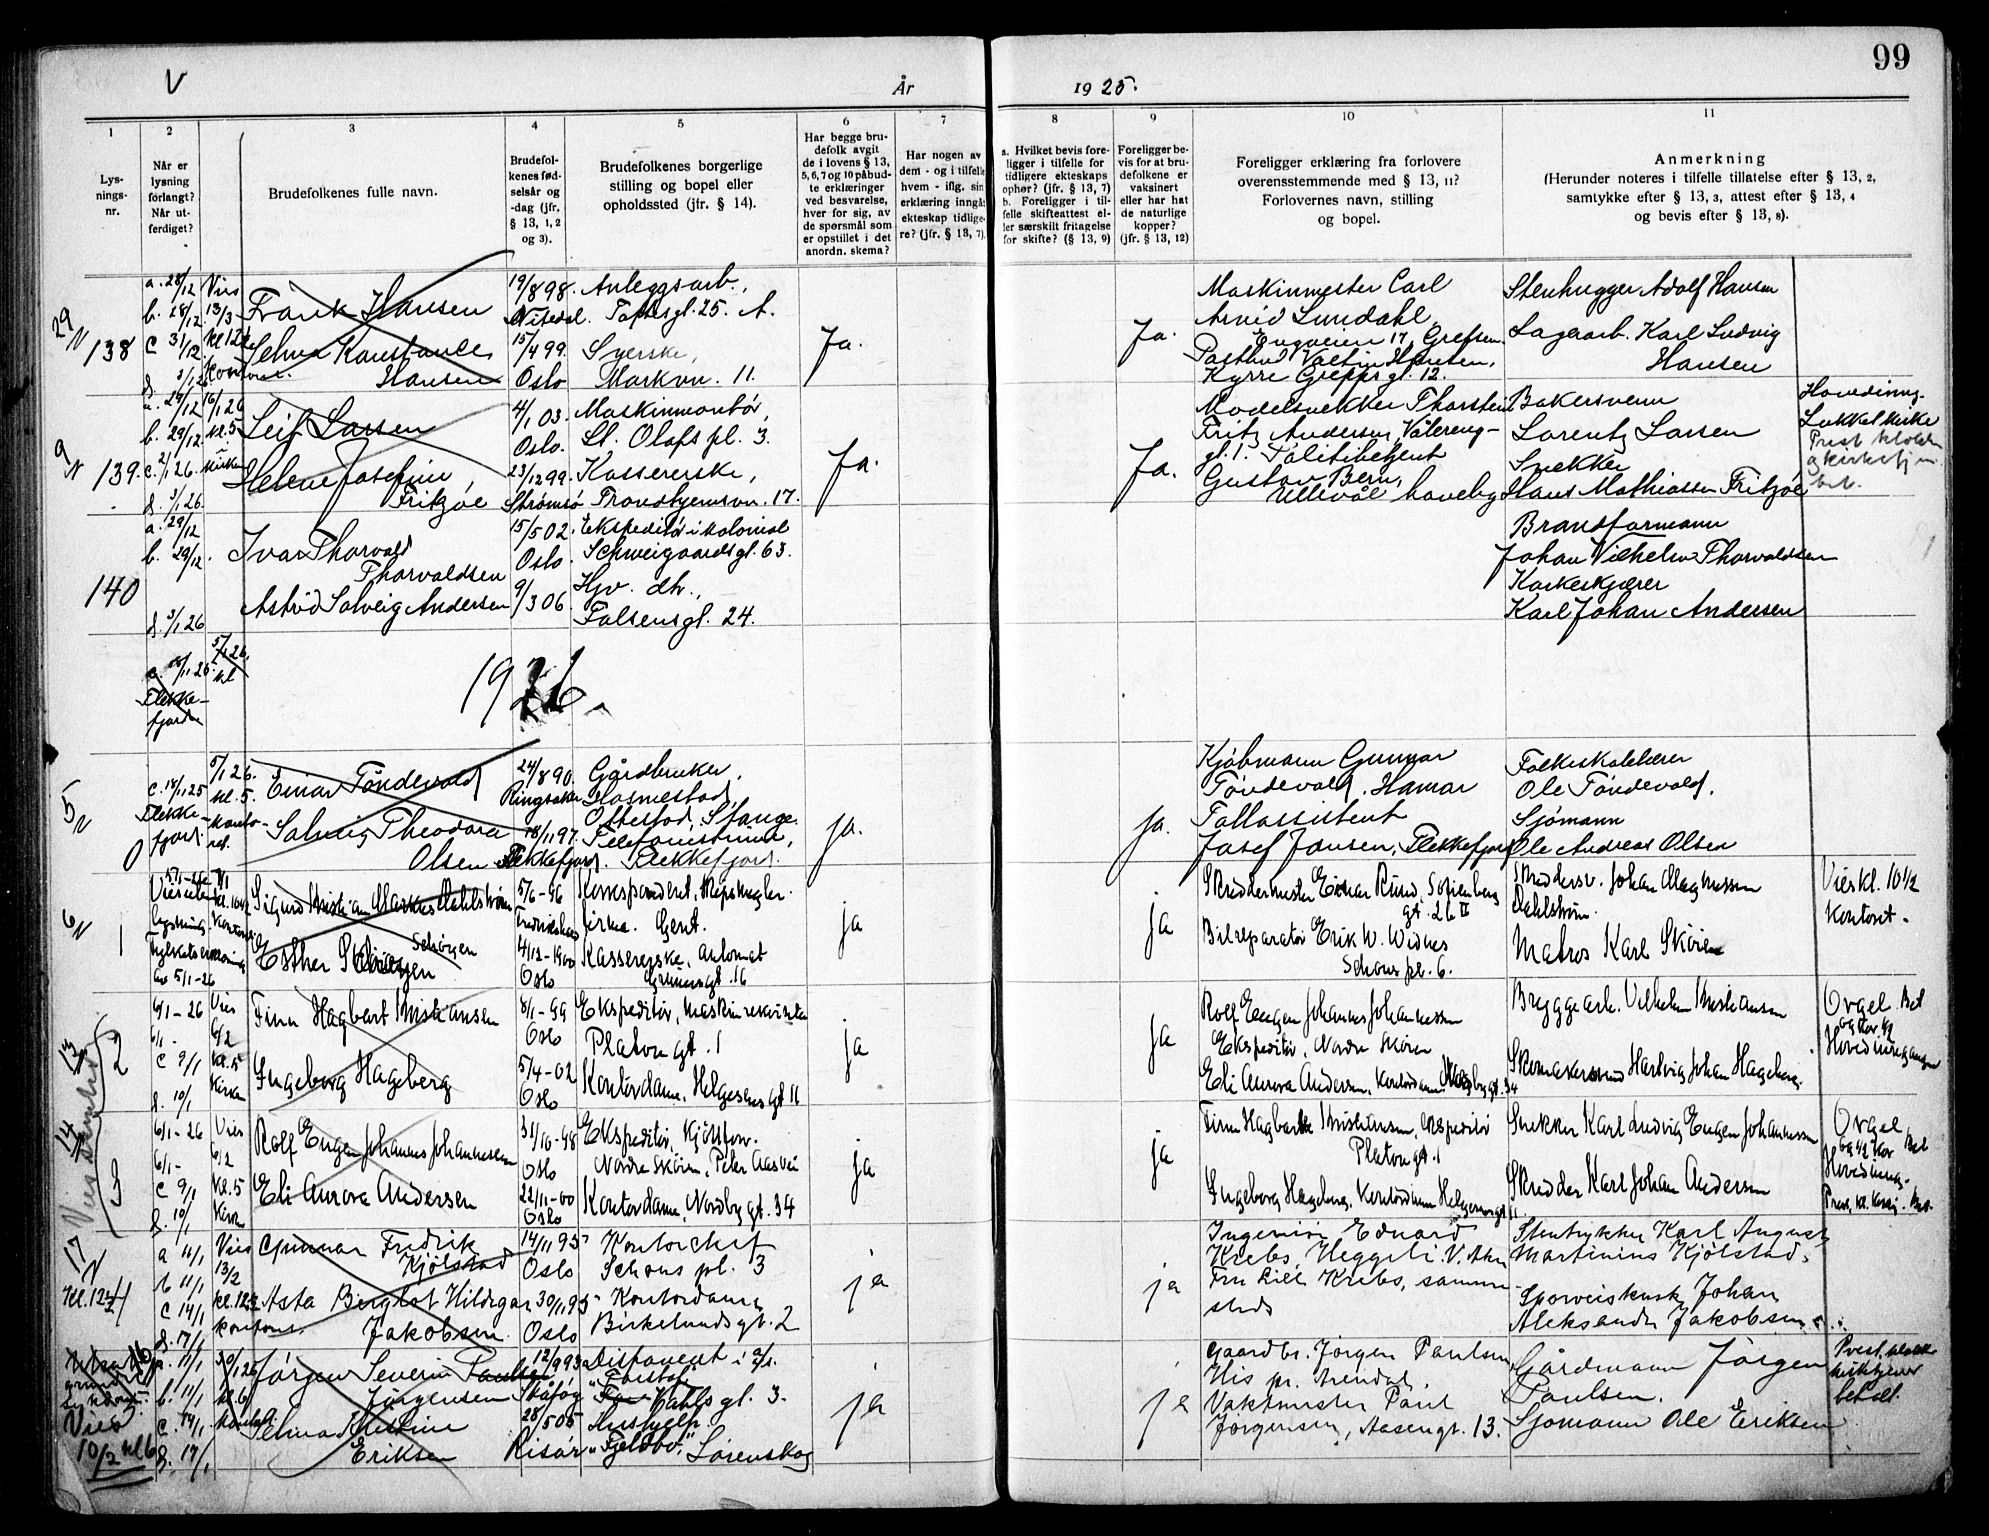 99
V
År
1925.
1
2
3
4
5
6
7
8
9
10
11
Lys-
nings-
nr.
Når er
lysning
forlangt?
Når ut-
ferdiget?
Brudefolkenes fulle navn.
Brudefol-
kenes fød-
selsår og
-dag (jfr.
§ 13, 1, 2
og 3).
Brudefolkenes borgerlige
stilling og bopel eller
opholdssted (jfr. § 14).
Har begge bru-
defolk avgit
de i lovens § 13,
5, 6, 7 og 10 påbud-
te erklæringer
ved besvarelse,
hver for sig, av
de spørsmål som
er opstillet i det
anordn. skema?
Har nogen av
dem - og i tilfelle
hvem - iflg. sin
erklæring inngåt
ekteskap tidlige-
re? (jfr. § 13, 7).
a. Hvilket bevis fore-
ligger i tilfelle for
tidligere ekteskaps
ophør? (jfr. § 13, 7)
b. Foreligger i til-
felle skifteattest el-
ler særskilt fritagelse
for skifte? (§ 13, 9)
Foreligger be-
vis for at bru-
defolkene er
vaksinert
eller har hat
de naturlige
kopper?
(jfr. § 13, 12)
Foreligger erklæring fra forlovere
overensstemmende med § 13, 11?
Forlovernes navn, stilling
og bopel.
Anmerkning
(Herunder noteres i tilfelle tillatelse efter § 13, 2,
samtykke efter § 13, 3, attest efter § 13, 4
og bevis efter § 13, 8).
29/N
138
a. 28/12
b. 28/12
c 31/12
Vies
13/3
Frank Hansen
Selma Konstance
Hansen
19/8 98.
Nitedal.
15/4 99.
Oslo
Anleggsarb.,
Toftesgt. 25. A.
Syerske,
Markvn. 11.
Ja.
Ja.
Maskinmester Carl
Arvid Lundahl,
Engveien 17, Grefsen.
Kyrre Greppsgt. 12.
Stenhugger Adolf Hansen
Lagerarb. Karl Ludvig
Hansen
9/N
139.
a. 29/12
b. 29/12.
c. 2/1 26.
d. 3/1 26.
16/1 26
kl. 5
kirken
Leif Larsen
Helene Josefine
Fritzøe
4/1 03.
Oslo.
23/12 99.
Strømsø
Maskinmontør,
St. Olafs pl. 3.
Kassererske,
Trondhjemsvn. 17.
Ja.
Ja.
Modelsnekker Thorstein
Fritz Andersen, Vålereng-
gt. 1. Politibetjent
Gustav Bern,
Ullevål haveby
Bakersvenn
Lorentz Larsen
Snekker
Hans Mathiassen Fritzøe
Hovedinng.
Lukket kirke
140
a. 29/12
b. 29/12.
d. 3/1 26
Ivar Thorvald
Thorvaldsen
Astrid Solveig Andersen
15/5 02.
Oslo.
9/3 06.
Ekspeditør i kolonial
Schweigaardsgt. 63.
Hjv. dtr.,
Falsensgt. 24.
Brandformann
Johan Vilhelm Thorvaldsen
Karl Johan Andersen
Flekke-
fjord
1926.
5/N
0
c. 18/11 25
Flekke-
fjord.
5/1 26.
kl. 5.
konto-
ret.
Einar Tøndevold
Solveig Theodora
Olsen
24/8 90.
Ringsaker
18/11 97.
Flekkefjord.
Gårdbruker,
Ottestad, Stange.
Telefonistinne,
Flekkefjord.
Ja.
Ja.
Kjøbmann Gunnar
Tøndevold, Hamar
Tollassistent
Josef Jansen, Flekkefjord
Folkeskolelærer
Ole Tøndevold.
Sjømann
Ole Andreas Olsen
6/N
1
lysning
av 5/1-26
Kontoret
Sigurd Kristian Markus Dahlstrøm
Esther
5/6-96
4/12-1900
Oslo
Korrespondent, Skipsmegler-
firma. Gent.
Kassererske, automat
Grünersgt. 16
ja
ja
Skreddermester Einar Rund, Sofienberg
gt. 26 II
Bilreparatør Erik W. Widnes
Schous pl. 6.
Skreddersv. Johan Magnussen
Dahlstrøm.
Matros Karl Skøien
Vies kl. 10 1/2
Kontoret.
2
6/1-26
6/1-
c 9/1
d. 10/1
Vies
6/2
kl. 5
Kirken
Finn Hagbart Kristiansen
Ingeborg Hageberg
8/1-99
Oslo
5/4-02
Oslo
Ekspeditør, maskinrekvisita
Platou gt. 1
Kontordame, Helgesens gt 11
ja
ja
Rolf Eugen Johannes Johannessen
Ekspeditør, Nordre Skøien
Eli Aurora Andersen, Kontordame, Nordby gt. 34
Bryggearb. Vilhelm Kristiansen
Skomakersvend Hartvig Johan Hageberg.
Orgel. Bet
Hovedinngangen
3
6/1-26
6/1-
c 9/1
d. 10/1
Vies
6/2
Kl. 5
Kirken
Rolf Eugen Johannes Johannessen
Eli Aurora Andersen
31/10-98
Oslo
22/11-00
Oslo
Ekspeditør, Kjøttforr.
Nordre Skøien, Peter Aasvei
Kontordame, Nordby gt. 34
ja
ja
Finn Hagbart Kristiansen, Ekspeditør
Platou gt. 1
Ingeborg Hageberg, Kontordame Helgesens gt. 11
Snekker Karl Ludvig Eugen Johannessen
Skredder Karl Johan Andersen
Orgel
Hovedinng.
17/N
kl. 12 1/2
4
a 11/1
b 11/1
c 14/1
d. 17/1
Vies
13/2
kl. 12 1/2
kontoret.
Gunnar Fredrik
Kjølstad
Asta Bergliot Hildegar
Jakobsen
14/11 95
Oslo
30/11 95
Oslo
Kontorchef
Schous pl. 3
Kontordame
Birkelundsgt. 2
ja
ja
Ingeniør Edvard
Krebs, Heggeli V. Aker
Fru Lill Krebs, samme-
steds
Stentrykker Karl August
Martinius Kjølstad.
Sporveiskusk Johan
Aleksander Jakobsen
Vies
10/2 kl 6
a. 11/1
b. 11/1
c. 14/1
d. 17/1
kl. 6
Jørgen Severin
Jørgensen
Selma Kristine
Eriksen
12/9 93
Skåtøy
28/5 05
Risør
Disponent i a/s.
Dahls gt. 3.
Hushjelp
"Fjeldbo," Lørenskog
ja
ja
Gaardbr. Jørgen Paulsen
His pr. Arendal.
Vaktmester Paul
Jørgensen, Aasengt. 13.
Gårdmann Jørgen
Paulsen.
Sjømann Ole Eriksen
Prest, klokker
kirketjener
betalt